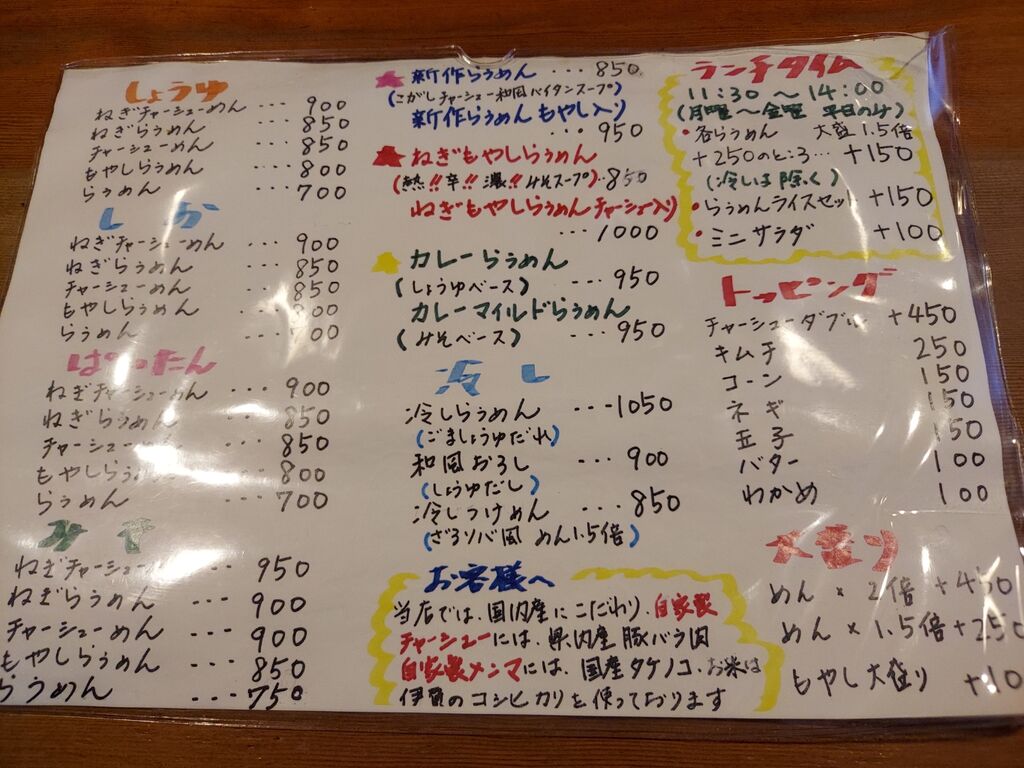 しょうゆ
ねぎチャーシューめん ・・・ 900
ねぎらうめん ・・・ 850
チャーシューめん ・・・ 850
もやしらうめん ・・・ 800
らうめん ・・・ 700
しお
ねぎチャーシューめん ・・・ 900
ねぎらうめん ・・・ 850
チャーシューめん ・・・ 850
もやしらうめん ・・・ 800
らうめん ・・・ 700
ねぎチャーシューめん ・・・ 900
ねぎらうめん ・・・ 850
チャーシューめん ・・・ 850
もやしらうめん ・・・ 800
らうめん ・・・ 700
みそ
ねぎチャーシューめん ・・・ 950
ねぎらうめん ・・・ 900
チャーシューめん ・・・ 900
もやしらうめん ・・・ 850
らうめん ・・・ 750
★新作らうめん ・・・ 850
(こがしチャーシュー和風パイタンスープ)
新作らうめん もやし入り
・・・ 950
★ねぎもやしらうめん
(熱!!辛!!濃!!みそスープ)・・ 850
ねぎもやしらうめんチャーシュー入り
・・・ 1000
★カレーらうめん
(しょうゆベース) ・・・ 950
カレーマイルドらうめん
(みそベース) ・・・ 950
冷し
冷しらうめん ・・・ 1050
(ごましょうゆだれ)
和風おろし ・・・ 900
(しょうゆだし)
冷しつけめん ・・・ 850
(ざるソバ風 めん1.5倍)
お客様へ
当店では、国内産にこだわり、自家製
チャーシューには、県内産豚バラ肉
自家製メンマには、国産タケノコ、お米は
伊賀のコシヒカリを使っております
ランチタイム
11:30～14:00
(月曜～金曜 平日のみ)
・各らうめん 大盛1.5倍
+250のところ… +150
(冷しは除く)
・らうめんライスセット +150
・ミニサラダ +100
トッピング
チャーシューダブル +450
キムチ 250
コーン 150
ネギ 150
玉子 150
バター 100
わかめ 100
大盛り
めん×2倍 +450
めん×1.5倍 +250
もやし大盛り